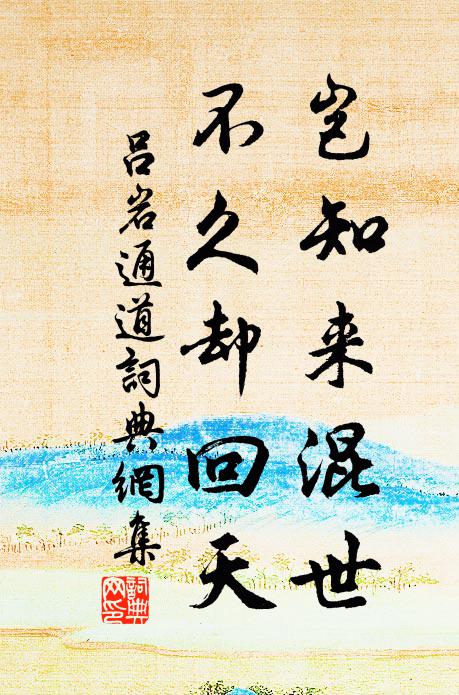 岂知来混世
不久却回天
吕岩通道詞典網集
詞典